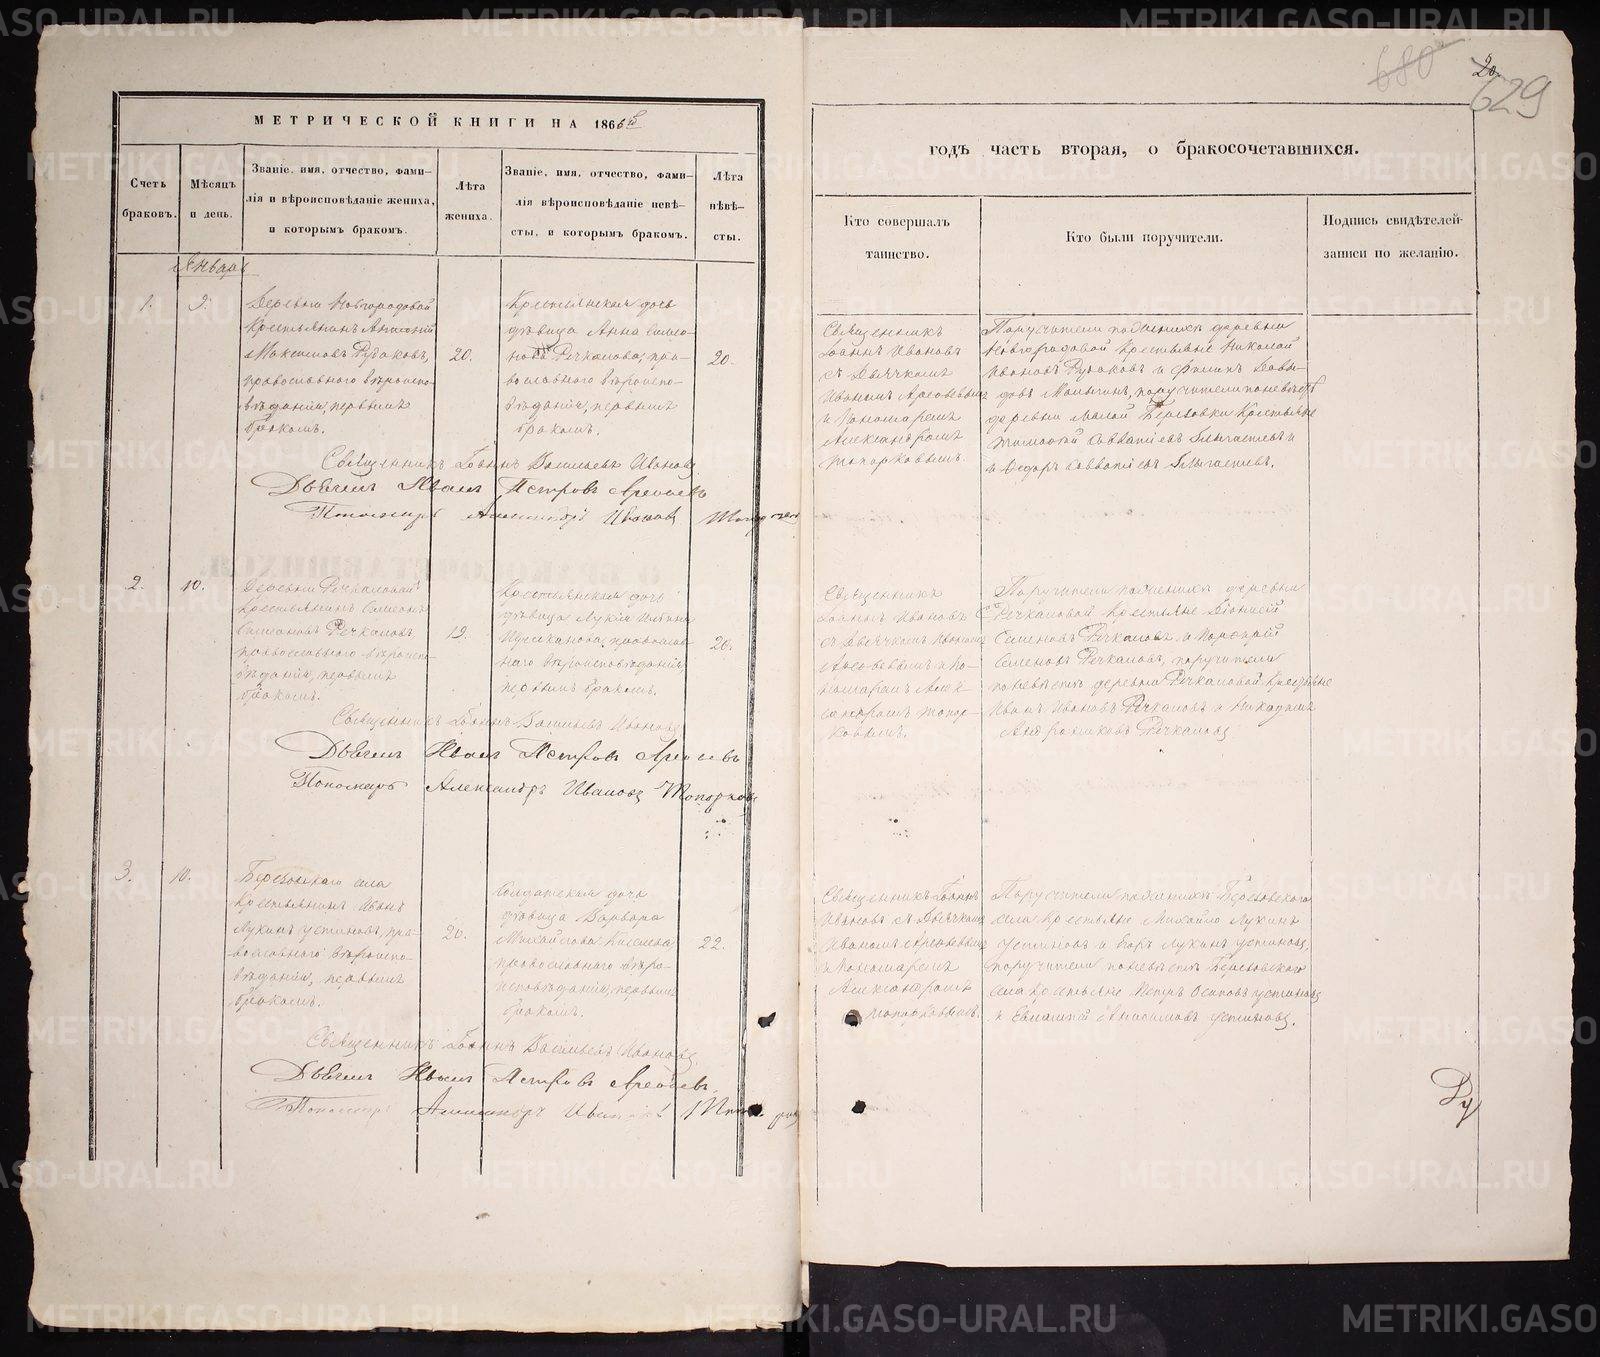 МЕТРИЧЕСКОЙ КНИГИ НА 1866й
Счетъ браковъ.
Мѣсяцъ и день.
Званіе, имя, отчество, фами-
лія и вѣроисповѣданіе жениха,
и которымъ бракомъ.
Лѣта жениха.
Званіе, имя, отчество, фами-
лія вѣроисповѣданіе невѣ-
сты, и которымъ бракомъ.
Лѣта невѣ-
сты.
Январь
1.
9.
Деревни Новгородовой
Крестьянинъ
Максимовъ Рудаковъ,
православнаго вѣроиспо-
вѣданія, первымъ
бракомъ.
20.
Крестьянская дочь
дѣвица Анна Симео-
нова Речкалова, пра-
вославнаго вѣроиспо-
вѣданія, первымъ
бракомъ.
20.
Священникъ Іоаннъ Васильевъ Ивановъ
Дьячекъ Иванъ Петровъ Арефьевъ
Пономарь Александръ Ивановъ
2.
10.
Деревни Речкаловой
крестьянинъ Симеонъ
Речкаловъ
православнаго вѣроиспо-
вѣданія, первымъ
бракомъ.
19.
Крестьянская дочь
дѣвица Лукія
православ-
наго вѣроисповѣданія,
первымъ бракомъ.
20.
Священникъ Іоаннъ Васильевъ Ивановъ
Дьячекъ Иванъ Петровъ Арефьевъ
Пономарь Александръ Ивановъ Топорковъ
3.
10.
Березовскаго села
крестьянинъ Иванъ
Лукинъ Устиновъ, пра-
вославнаго вѣроиспо-
вѣданія, первымъ
бракомъ.
20.
Солдатская дочь
дѣвица Варвара
Михайлова Киселева
православнаго вѣро-
исповѣданія, первымъ
бракомъ.
22.
Священникъ Іоаннъ Васильевъ Ивановъ
Дьячекъ Иванъ Петровъ Арефьевъ,
Пономарь Александръ Ивановъ
680
20.
629
годъ часть вторая, о бракосочетавшихся.
Кто совершалъ
таинство.
Кто были поручители.
Подпись свидѣтелей
записи по желанію.
Священникъ
Іоаннъ Ивановъ
съ Дьячкомъ
Иваномъ Арефьевымъ
и Пономаремъ
Александромъ
Топорковымъ.
Поручители по женихѣ деревни
Новгородовой Крестьяне Николай
Ивановъ Рудаковъ и Филипъ Давы-
довъ поручители по невѣстѣ
деревни Малой Березовки Крестьяне
Тимофей Савватіевъ
и Ѳедоръ Савватіевъ
Священникъ
Іоаннъ Ивановъ
съ Дьячкомъ Иваномъ
Арефьевымъ и По-
номаремъ Алек-
сандромъ Топор-
ковымъ.
Поручители по женихѣ деревни
Речкаловой Крестьяне Діонисій
Семеновъ Речкаловъ и
Семеновъ Речкаловъ, поручители
по невѣстѣ деревни Речкаловой Крестьяне
Иванъ Ивановъ Речкаловъ и
Речкаловъ
Священникъ Іоаннъ
Ивановъ съ Дьячкомъ
Иваномъ Арефьевымъ
и Пономаремъ
Александромъ
Топорковымъ.
Поручители по женихѣ Березовскаго
села крестьяне Михайло Лукинъ
Устиновъ и Егоръ Лукинъ Устиновъ,
поручители по невѣстѣ Березовскаго
села крестьяне Петръ Осиповъ Устиновъ
и Евлампій Устиновъ.